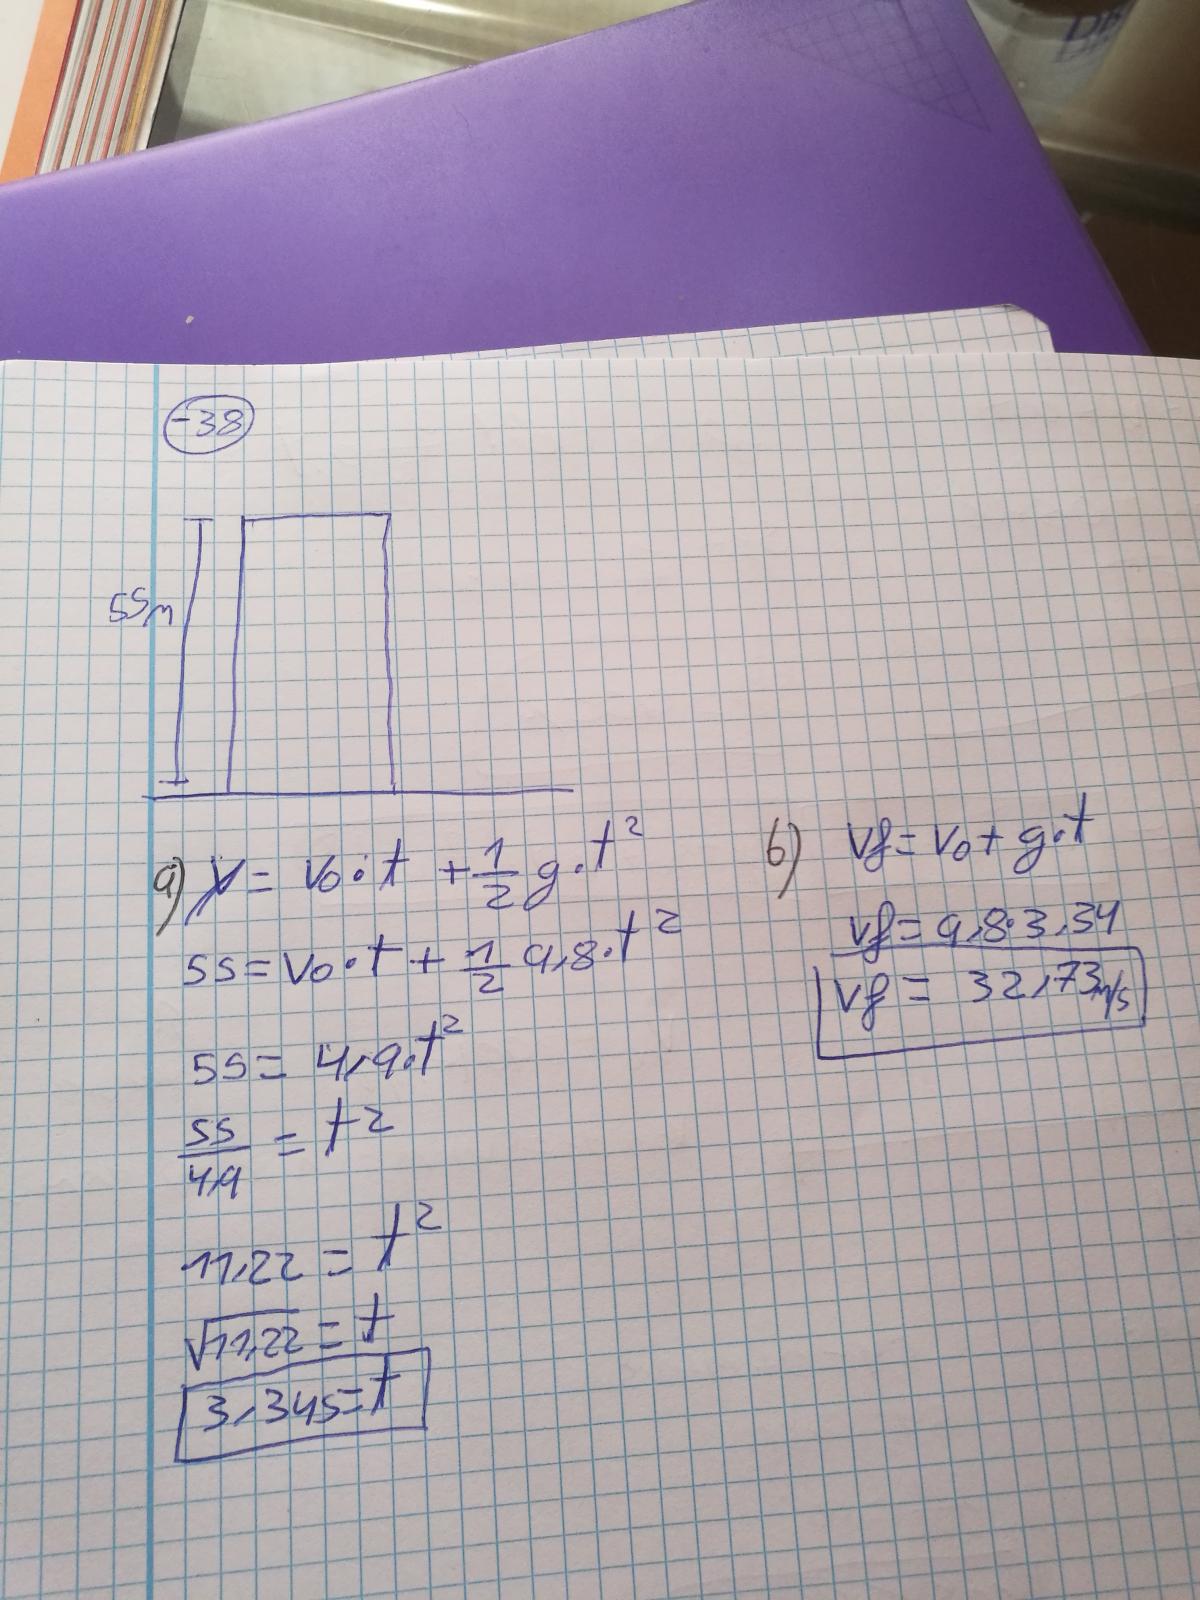 -38
55m
a) y = v₀·t + 1/2 g·t²
55 = v₀·t + 1/2 9,8·t²
55 = 4,9·t²
55/4,9 = t²
11,22 = t²
√11,22 = t
3,34s = t
b) vf = v₀ + g·t
vf = 9,8·3,34
vf = 32,73 m/s